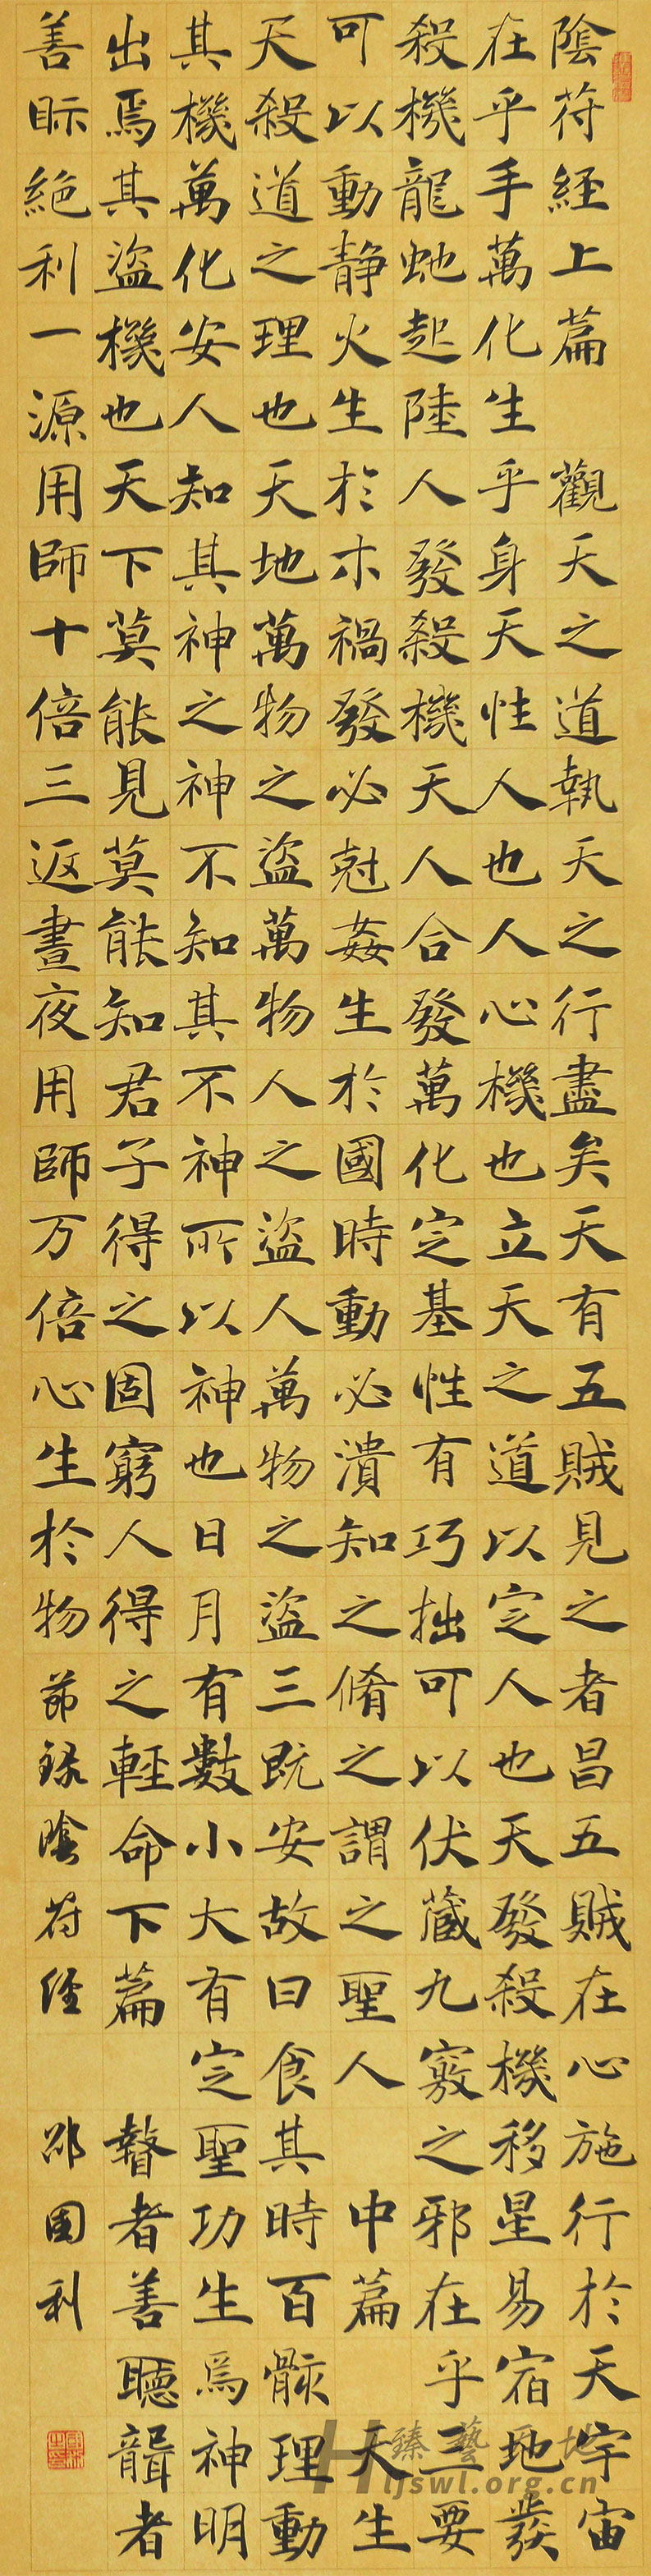 陰符經上篇 觀天之道執天之行盡矣天有五賊見之者昌五賊在心施行於天宇宙
在乎手萬化生乎身天性人也人心機也立天之道以定人也天發殺機移星易宿地發
殺機龍虵起陸人發殺機天人合發萬化定基性有巧拙可以伏藏九竅之邪在乎三要
可以動静火生於木禍發必尅姦生於國時動必潰知之脩之謂之聖人 中篇 天生
天殺道之理也天地萬物之盜萬物人之盜人萬物之盜三既安故曰食其時百骸理動
其機萬化安人知其神之神不知其不神所以神也日月有數小大有定聖功生焉神明
出焉其盜機也天下莫能見莫能知君子得之固窮人得之輕命下篇 瞽者善聽聾者
善眎絕利一源用師十倍三返晝夜用師万倍心生於物 節録陰符經 邵国利
臻藝 地
Hljswl.org.cn